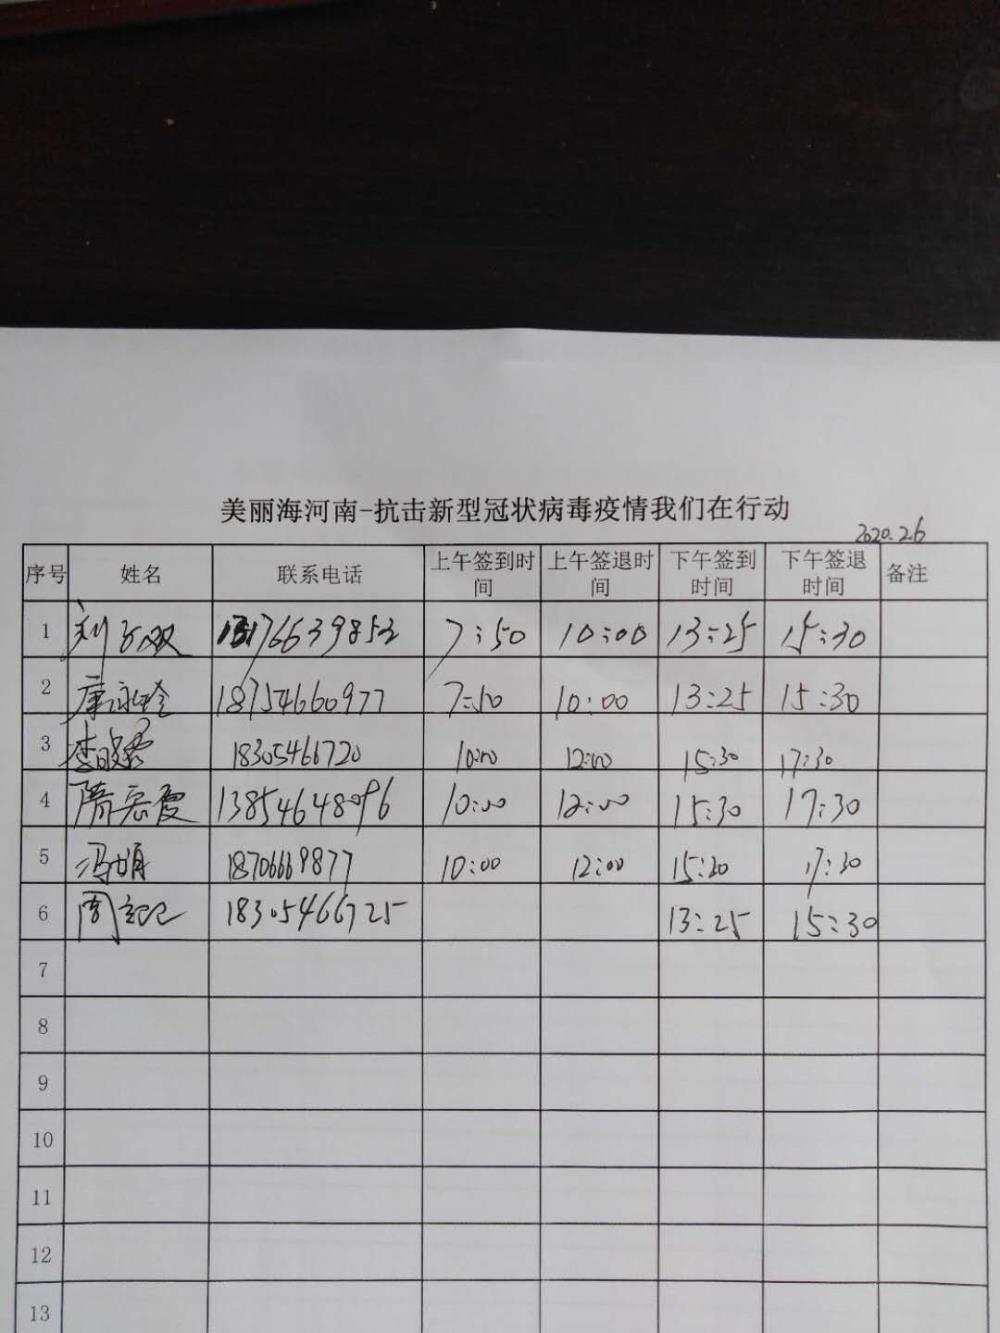 美丽海河南-抗击新型冠状病毒疫情我们在行动
2020.2.6
序号 姓名 联系电话 上午签到时间 上午签退时间 下午签到时间 下午签退时间 备注
1 刘 13176639852 7:50 10:00 13:25 15:30
2 康永玲 18754660977 7:50 10:00 13:25 15:30
3 李晓露 18305466720 10:00 12:00 15:30 17:30
4 隋 13854648096 10:00 12:00 15:30 17:30
5 冯娟 18706669877 10:00 12:00 15:30 17:30
6 周 18305466725 13:25 15:30
7
8
9
10
11
12
13